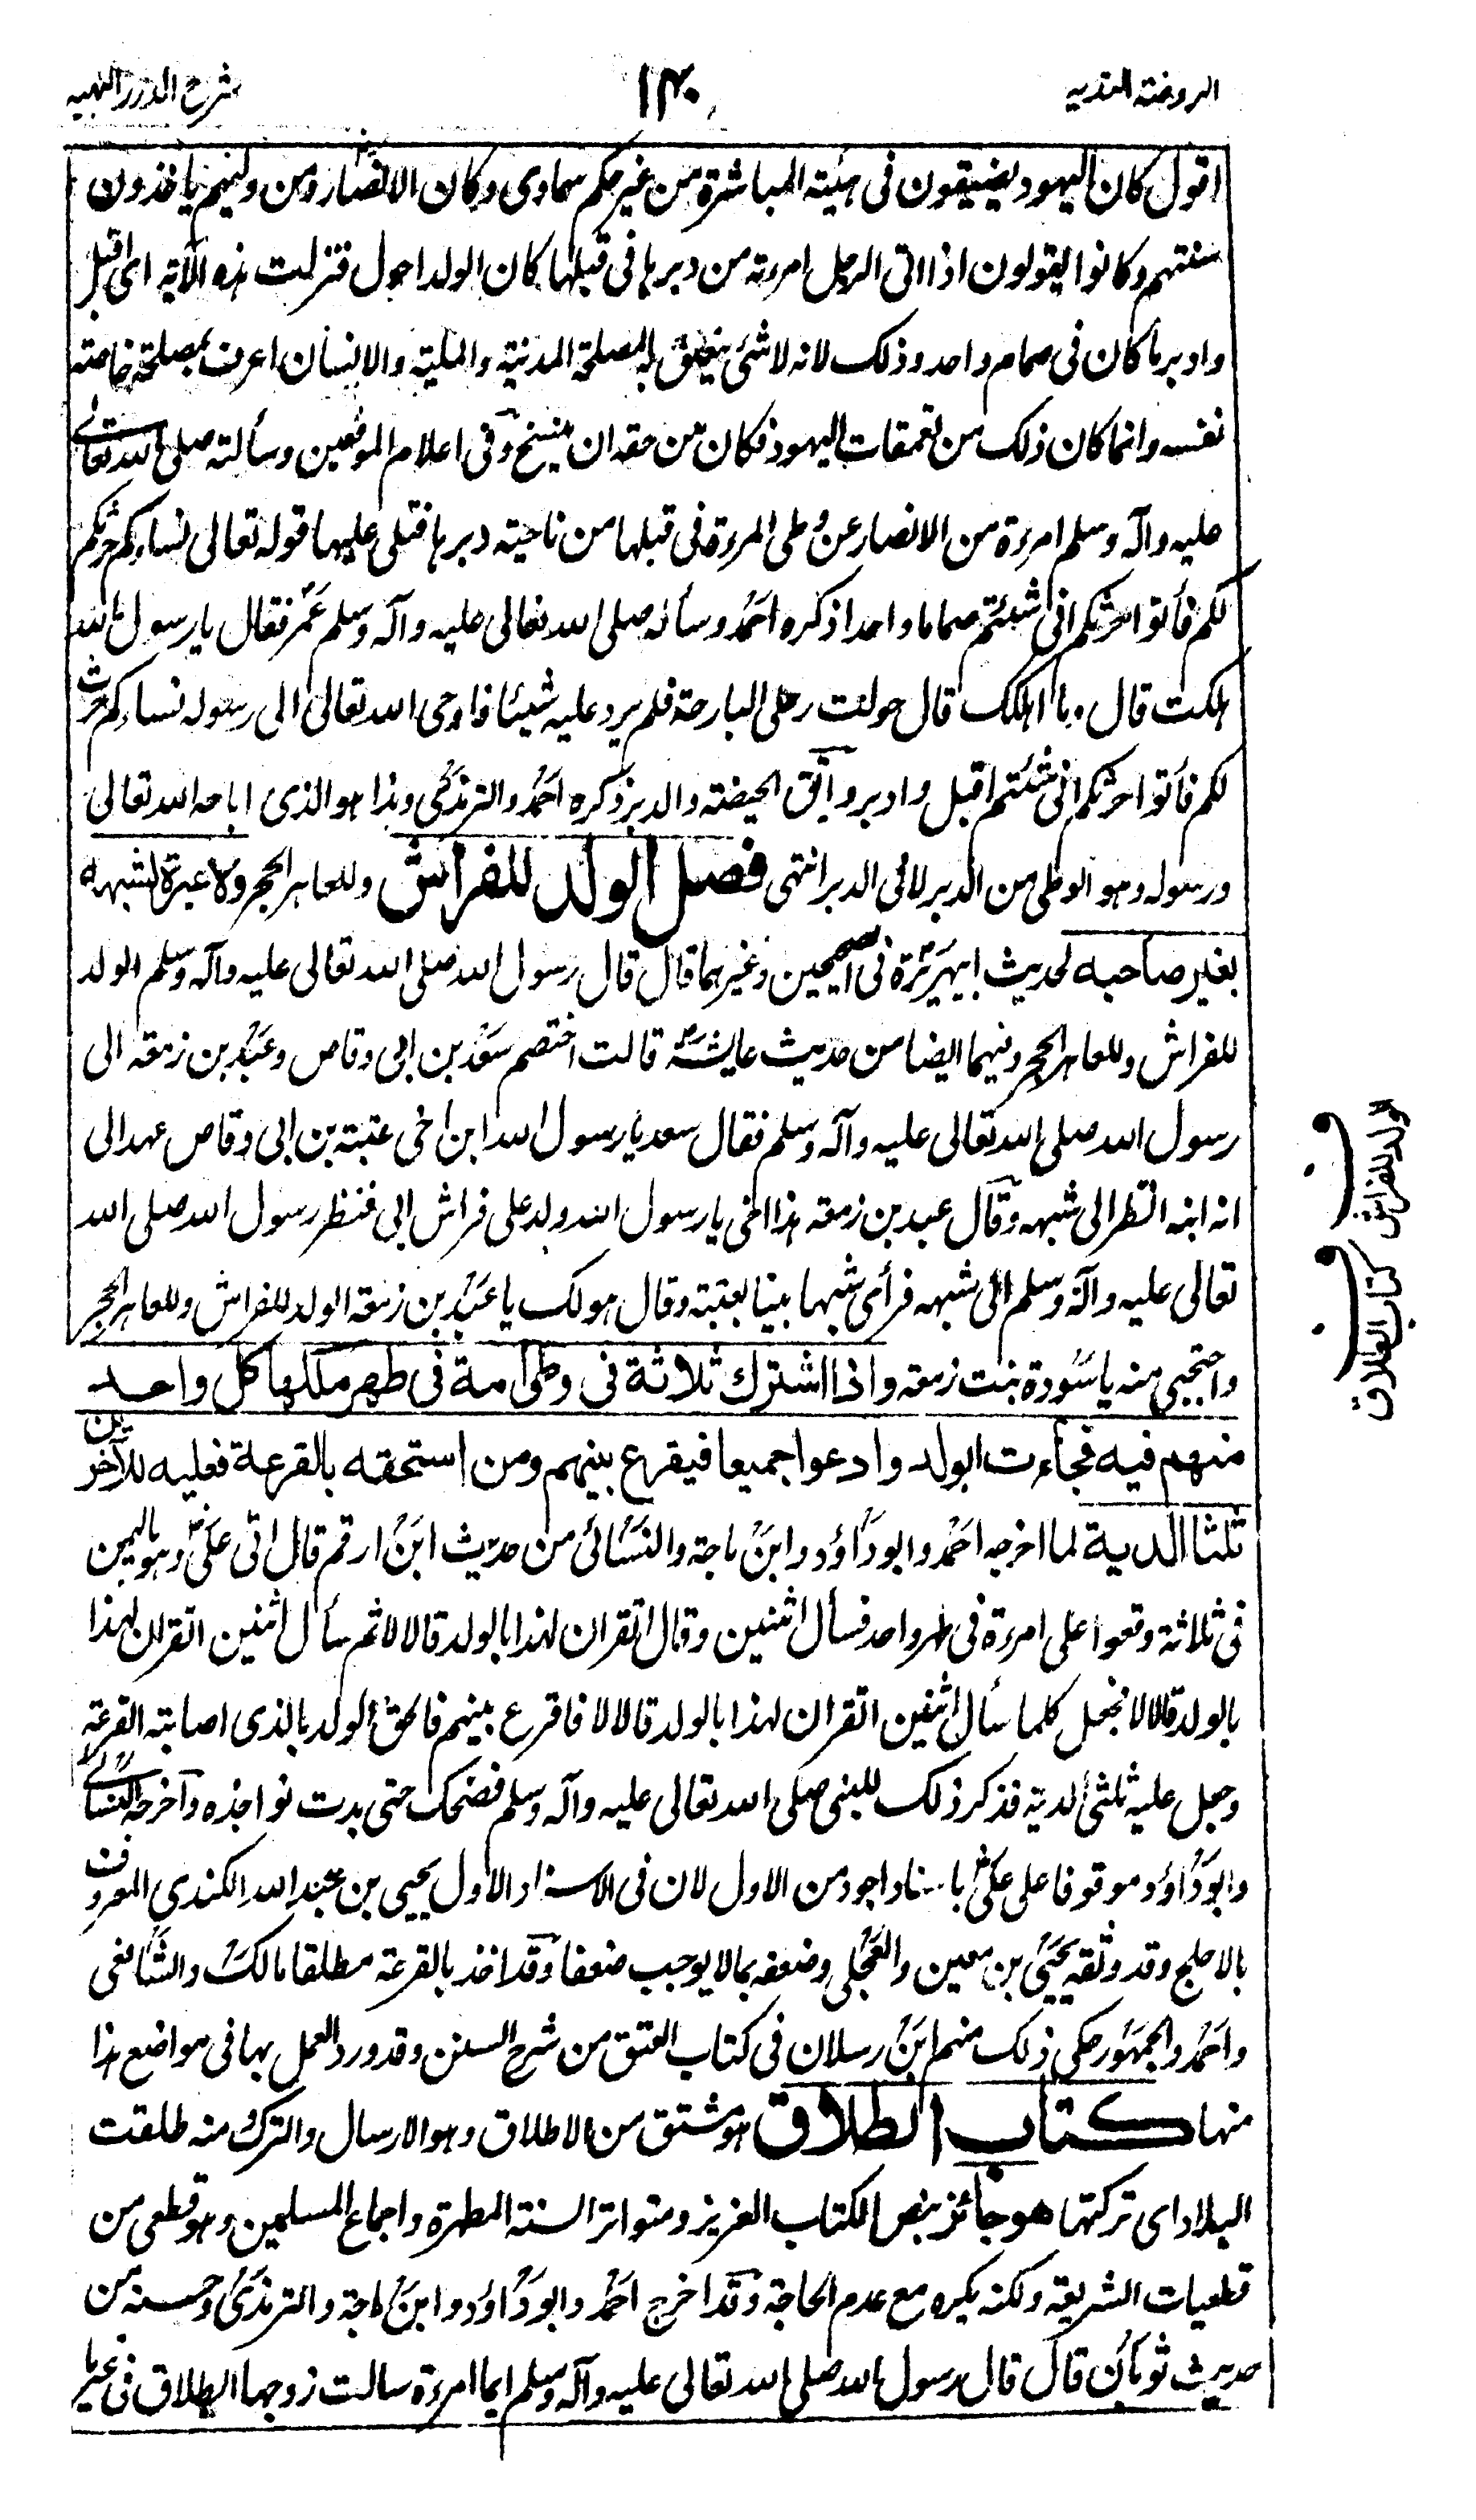 الروضة الندية
١٣٠
شرح الدرر البهية
اقول كان اليهود يضيقون فى هيئة المباشرة من غير حكم سماوى وكان الانصار ومن وليهم يأخذون
سنتهم وكانوا يقولون اذا اتى الرجل امرءته من دبرها فى قبلها كان الولد احول فنزلت هذه الآية اى اقبل
وادبر ما كان فى صمام واحد وذلك لانه لا شئ يتعلق به المصلحة المدنية والملية والانسان اعرف بمصلحة خاصة
نفسه وانما كان ذلك من تعمقات اليهود فكان من حقه ان ينسخ وفى اعلام الموقعين وسألته صلى الله تعالى
عليه وآله وسلم امرءة من الانصار عن وطى المرءة فى قبلها من ناحية دبرها فتلى عليها قوله تعالى نساؤكم حرثكم
لكم فأتوا حرثكم انى شئتم صماما واحدا ذكره احمد وسأله صلى الله تعالى عليه وآله وسلم عمر فقال يا رسول الله
هلكت قال وما اهلكك قال حولت رحلى البارحة فلم يرد عليه شيئا فاوحى الله تعالى الى رسوله نساؤكم حرث
لكم فأتوا حرثكم انى شئتم اقبل وادبر واتق الحيضة والدبر ذكره احمد والترمذى وهذا هو الذى اباحه الله تعالى
ورسوله وهو الوطى من الدبر لا فى الدبر انتهى فصل الولد للفراش وللعاهر الحجر ولا عبرة لشبهه
بغير صاحبه لحديث ابيهريرة فى الصحيحين وغيرهما قال قال رسول الله صلى الله تعالى عليه وآله وسلم الولد
للفراش وللعاهر الحجر وفيهما ايضا من حديث عايشة قالت اختصم سعد بن ابى وقاص وعبد بن زمعة الى
رسول الله صلى الله تعالى عليه وآله وسلم فقال سعد يا رسول الله ابن اخى عتبة بن ابى وقاص عهد الى
انه ابنه انظر الى شبهه وقال عبد بن زمعة هذا اخى يا رسول الله ولد على فراش ابى فنظر رسول الله صلى الله
تعالى عليه وآله وسلم الى شبهه فرأى شبها بينا بعتبة وقال هو لك يا عبد بن زمعة الولد للفراش وللعاهر الحجر
واحتجبى منه يا سودة بنت زمعة واذا اشترك ثلاثة فى وطى امة فى طهر ملكها كل واحد
منهم فيه فجاءت بولد وادعوا جميعا فيقرع بينهم ومن استحقه بالقرعة فعليه للآخرين
ثلثا الدية لما اخرجه احمد وابو داؤد وابن ماجة والنسائى من حديث ابن ارقم قال اتى على وهو باليمن
فى ثلاثة وقعوا على امرءة فى طهر واحد فسأل اثنين وقال اتقران لهذا بالولد قالا لا ثم سأل اثنين اتقران لهذا
بالولد قالا لا فجعل كلما سأل اثنين اتقران لهذا بالولد قالا لا فاقرع بينهم فالحق الولد بالذى اصابته القرعة
وجعل عليه ثلثى الدية فذكر ذلك للنبى صلى الله تعالى عليه وآله وسلم فضحك حتى بدت نواجذه واخرجه النسائى
وابو داؤد موقوفا على على باسناد اجود من الاول لان فى الاسناد الاول يحيى بن عبد الله الكندى المعروف
بالاجلح وقد وثقه يحيى بن معين والعجلى وضعفه بما لا يوجب ضعفا وقد اخذ بالقرعة مطلقا مالك والشافعى
واحمد والجمهور حكى ذلك منهم ابن رسلان فى كتاب العتق من شرح السنن وقد ورد العمل بها فى مواضع هذا
منها كتاب الطلاق هو مشتق من الاطلاق وهو الارسال والترك منه طلقت
البلاد اى تركتها هو جائز بنص الكتاب العزيز ومتواتر السنة المطهرة واجماع المسلمين وهو قطعى من
قطعيات الشريعة ولكنه يكره مع عدم الحاجة وقد اخرج احمد وابو داؤد وابن ماجة والترمذى وحسنه من
حديث ثوبان قال قال رسول الله صلى الله تعالى عليه وآله وسلم ايما امرءة سالت زوجها الطلاق فى غير ما
الولد للفراش
كتاب الطلاق